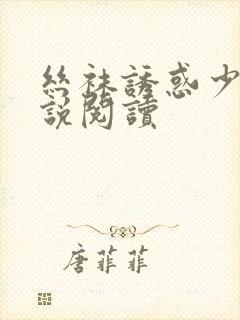 絲袜誘惑少
說閱讀
唐菲菲